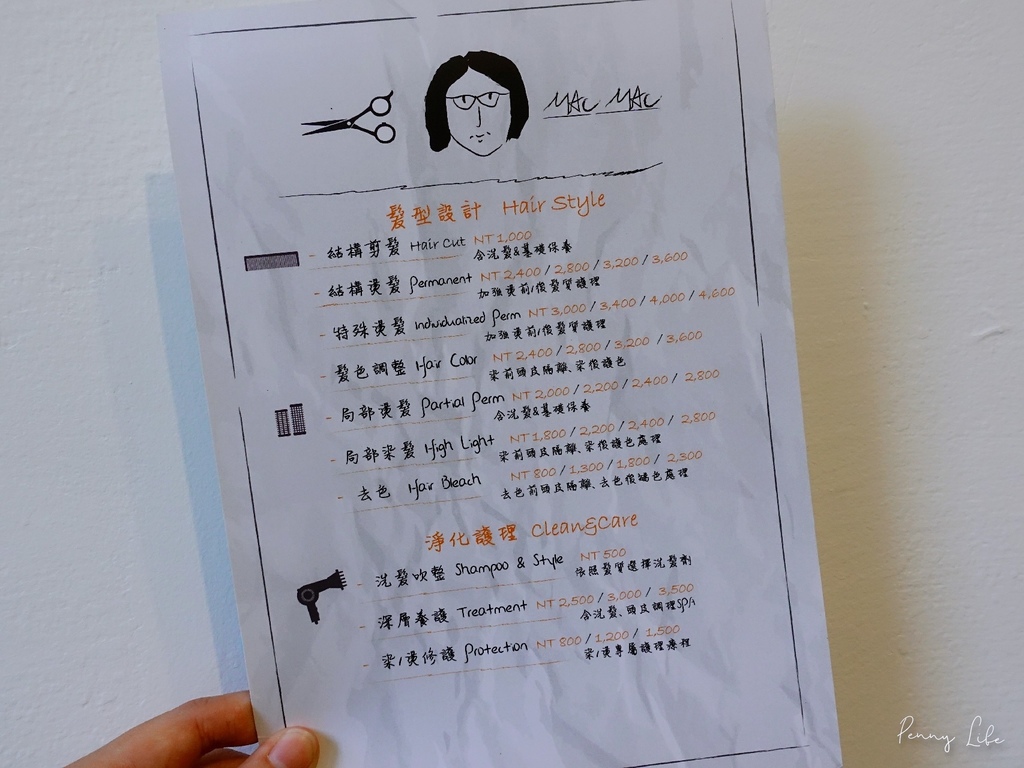 MAC MAC
髮型設計 Hair Style
- 結構剪髮 Hair Cut NT 1,000
含洗髮&基礎保養
- 結構燙髮 Permanent NT 2,400 / 2,800 / 3,200 / 3,600
加強燙前/後髮質護理
- 特殊燙髮 Individualized Perm NT 3,000 / 3,400 / 4,000 / 4,600
加強燙前/後髮質護理
- 髮色調整 Hair Color NT 2,400 / 2,800 / 3,200 / 3,600
染前頭皮隔離、染後護色
- 局部燙髮 Partial Perm NT 2,000 / 2,200 / 2,400 / 2,800
含洗髮&基礎保養
- 局部染髮 High Light NT 1,800 / 2,200 / 2,400 / 2,800
染前頭皮隔離、染後護色處理
- 去色 Hair Bleach NT 800 / 1,300 / 1,800 / 2,300
去色前頭皮隔離、去色後補色處理
淨化護理 Clean&Care
- 洗髮吹整 Shampoo & Style NT 500
依照髮質選擇洗髮劑
- 深層養護 Treatment NT 2,500 / 3,000 / 3,500
含洗髮、頭皮調理SPA
- 染/燙修護 Protection NT 800 / 1,200 / 1,500
染/燙專屬護理療程
Penny Life